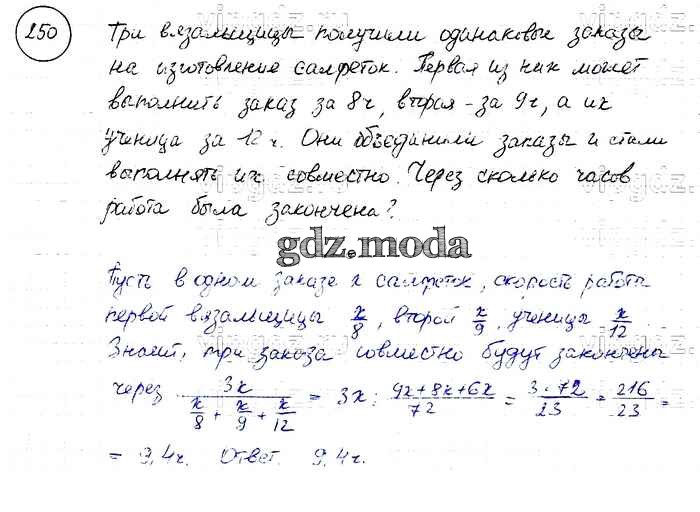 250
Три вязальщицы получили одинаковые заказы
на изготовление салфеток. Первая из них может
выполнить заказ за 8ч, вторая - за 9ч, а их
ученица за 12 ч. Они объединили заказы и стали
выполнять их совместно. Через сколько часов
работа была закончена?
gdz.moda
Пусть в одном заказе x салфеток, скорость работы
первой вязальщицы x/8, второй x/9, ученицы x/12
Значит, три заказа совместно будут закончены
через 3x / (x/8 + x/9 + x/12) = 3x : (9x+8x+6x)/72 = 3·72/23 = 216/23 =
= 9,4ч. Ответ 9,4ч.